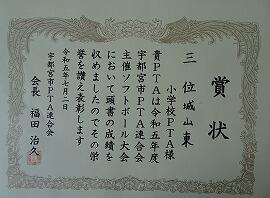 賞状
三位 城山東
小学校PTA様
貴PTAは令和五年度
宇都宮市PTA連合会
主催ソフトボール大会
において頭書の成績を
収めましたのでその栄
誉を讃え表彰します
令和五年七月二日
宇都宮市PTA連合会
会長 福田治久